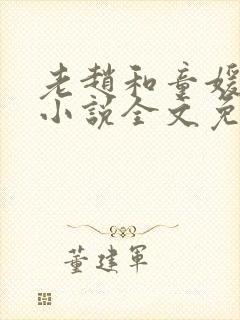 老趙和童媛
小說全文免
董建軍